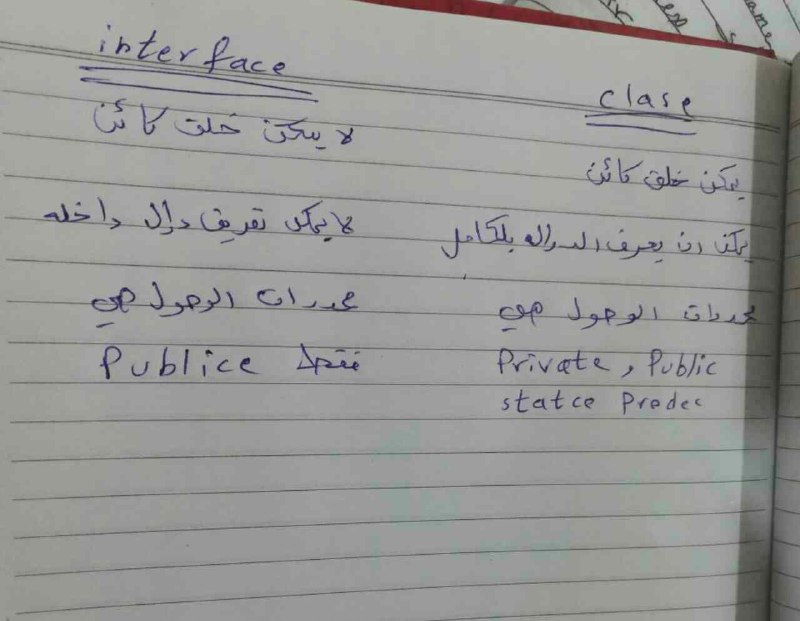 interface
clase
لا يمكن خلق كائن
يمكن خلق كائن
لا يمكن تعريف دال داخله
يمكن ان يعرف الداله بلكامل
محددات الوصول هي
محددات الوصول هي
Publice فقط
Private, Public
statce Prodec